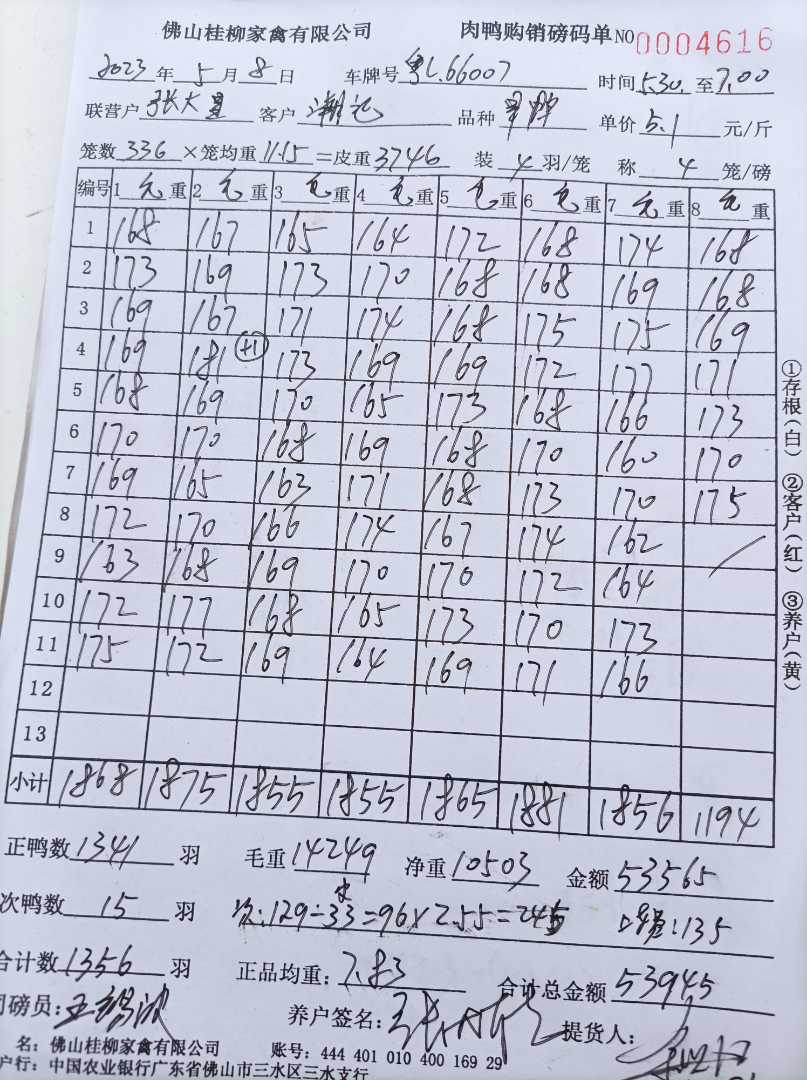 佛山桂柳家禽有限公司 肉鸭购销磅码单 NO 0004616
2023年5月8日 车牌号 粤L.66007 时间5.30.至7.00
联营户 张大星 客户 潮记 品种 单价5.1元/斤
笼数336×笼均重11.15=皮重3746 装4羽/笼 称4笼/磅
编号 1 重 2 重 3 重 4 重 5 重 6 重 7 重 8 重
1 168 167 165 164 172 168 174 168
2 173 169 173 170 168 168 169 168
3 169 167 171 174 168 175 175 169
4 169 181 +1 173 169 169 172 177 171
5 168 169 170 165 173 168 166 173
6 170 170 168 169 168 170 160 170
7 169 165 163 171 168 173 170 175
8 172 170 166 174 167 174 162
9 163 168 169 170 170 172 164
10 172 177 168 165 173 170 173
11 175 172 169 164 169 171 166
12
13
小计 1868 1875 1855 1855 1865 1881 1856 1194
正鸭数1341羽 毛重14249 净重10503 金额53565
次鸭数15羽 次:129÷33=96×2.55=245 :135
合计数1356羽 正品均重:7.83 合计总金额53945
司磅员: 养户签名: 提货人:
名:佛山桂柳家禽有限公司 账号:444 401 010 400 169 29
户行:中国农业银行广东省佛山市三水区三水支行
①存根(白) ②客户(红) ③养户(黄)